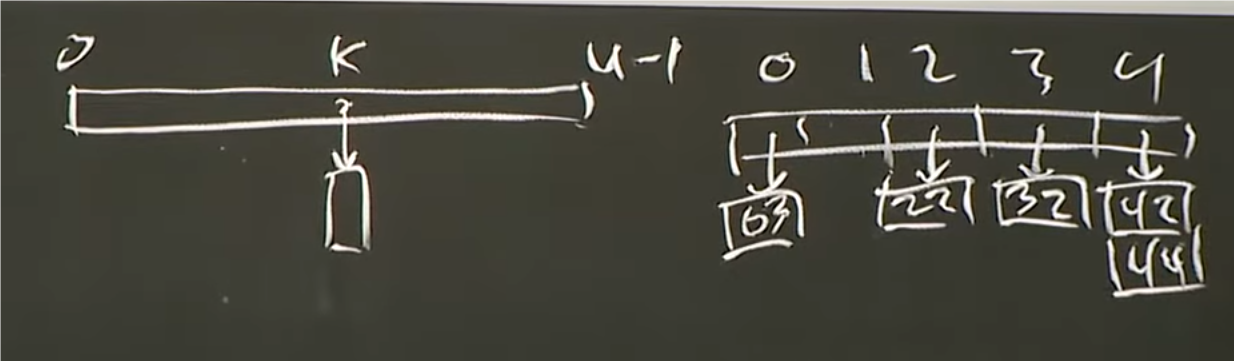 0 K u-1 0 1 2 3 4
03 22 32 42
44